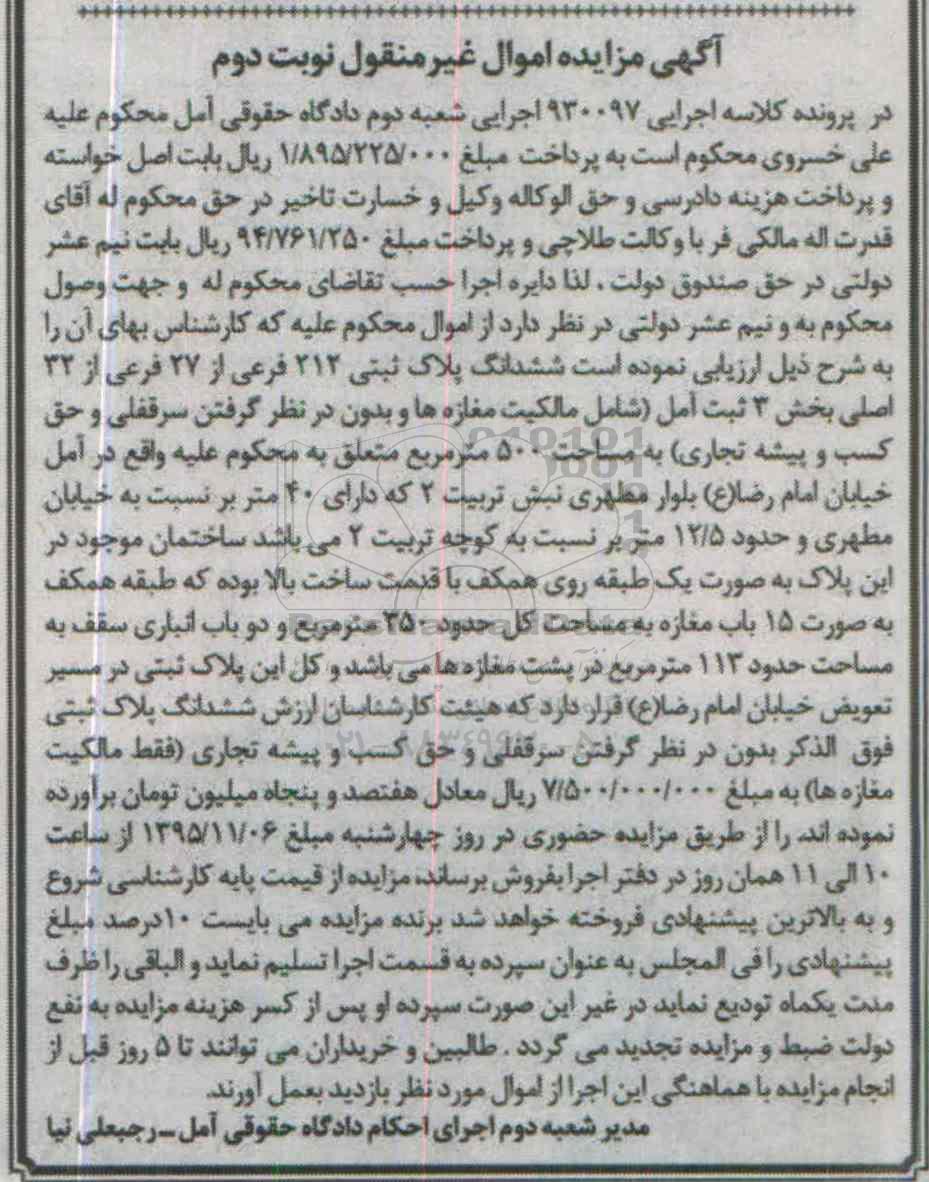 آگهی مزایده اموال غیرمنقول نوبت دوم
در پرونده کلاسه اجرایی ۹۳۰۰۹۷ اجرایی شعبه دوم دادگاه حقوقی آمل محکوم علیه
علی خسروی محکوم است به پرداخت مبلغ ۱/۸۹۵/۲۲۵/۰۰۰ ریال بابت اصل خواسته
و پرداخت هزینه دادرسی و حق الوکاله وکیل و خسارت تاخیر در حق محکوم له آقای
قدرت اله مالکی فر با وکالت طلاچی و پرداخت مبلغ ۹۴/۷۶۱/۲۵۰ ریال بابت نیم عشر
دولتی در حق صندوق دولت . لذا دایره اجرا حسب تقاضای محکوم له و جهت وصول
محکوم به و نیم عشر دولتی در نظر دارد از اموال محکوم علیه که کارشناس بهای آن را
به شرح ذیل ارزیابی نموده است ششدانگ پلاک ثبتی ۲۱۲ فرعی از ۲۷ فرعی از ۳۲
اصلی بخش ۳ ثبت آمل (شامل مالکیت مغازه ها و بدون در نظر گرفتن سرقفلی و حق
کسب و پیشه تجاری) به مساحت ۵۰۰ مترمربع متعلق به محکوم علیه واقع در آمل
خیابان امام رضا(ع) بلوار مطهری نبش تربیت ۲ که دارای ۴۰ متر بر نسبت به خیابان
مطهری و حدود ۱۲/۵ متر بر نسبت به کوچه تربیت ۲ می باشد ساختمان موجود در
این پلاک به صورت یک طبقه روی همکف با قدمت ساخت بالا بوده که طبقه همکف
به صورت ۱۵ باب مغازه به مساحت کل حدود ۳۵۰ مترمربع و دو باب انباری سقف به
مساحت حدود ۱۱۳ مترمربع در پشت مغازه ها می باشد و کل این پلاک ثبتی در مسیر
تعویض خیابان امام رضا(ع) قرار دارد که هیئت کارشناسان ارزش ششدانگ پلاک ثبتی
فوق الذکر بدون در نظر گرفتن سرقفلی و حق کسب و پیشه تجاری (فقط مالکیت
مغازه ها) به مبلغ ۷/۵۰۰/۰۰۰/۰۰۰ ریال معادل هفتصد و پنجاه میلیون تومان برآورده
نموده اند. را از طریق مزایده حضوری در روز چهارشنبه مبلغ ۱۳۹۵/۱۱/۰۶ از ساعت
۱۰ الی ۱۱ همان روز در دفتر اجرا بفروش برساند، مزایده از قیمت پایه کارشناسی شروع
و به بالاترین پیشنهادی فروخته خواهد شد برنده مزایده می بایست ۱۰درصد مبلغ
پیشنهادی را فی المجلس به عنوان سپرده به قسمت اجرا تسلیم نماید و الباقی را ظرف
مدت یکماه تودیع نماید در غیر این صورت سپرده او پس از کسر هزینه مزایده به نفع
دولت ضبط و مزایده تجدید می گردد . طالبین و خریداران می توانند تا ۵ روز قبل از
انجام مزایده با هماهنگی این اجرا از اموال مورد نظر بازدید بعمل آورند.
مدیر شعبه دوم اجرای احکام دادگاه حقوقی آمل ــ رجبعلی نیا